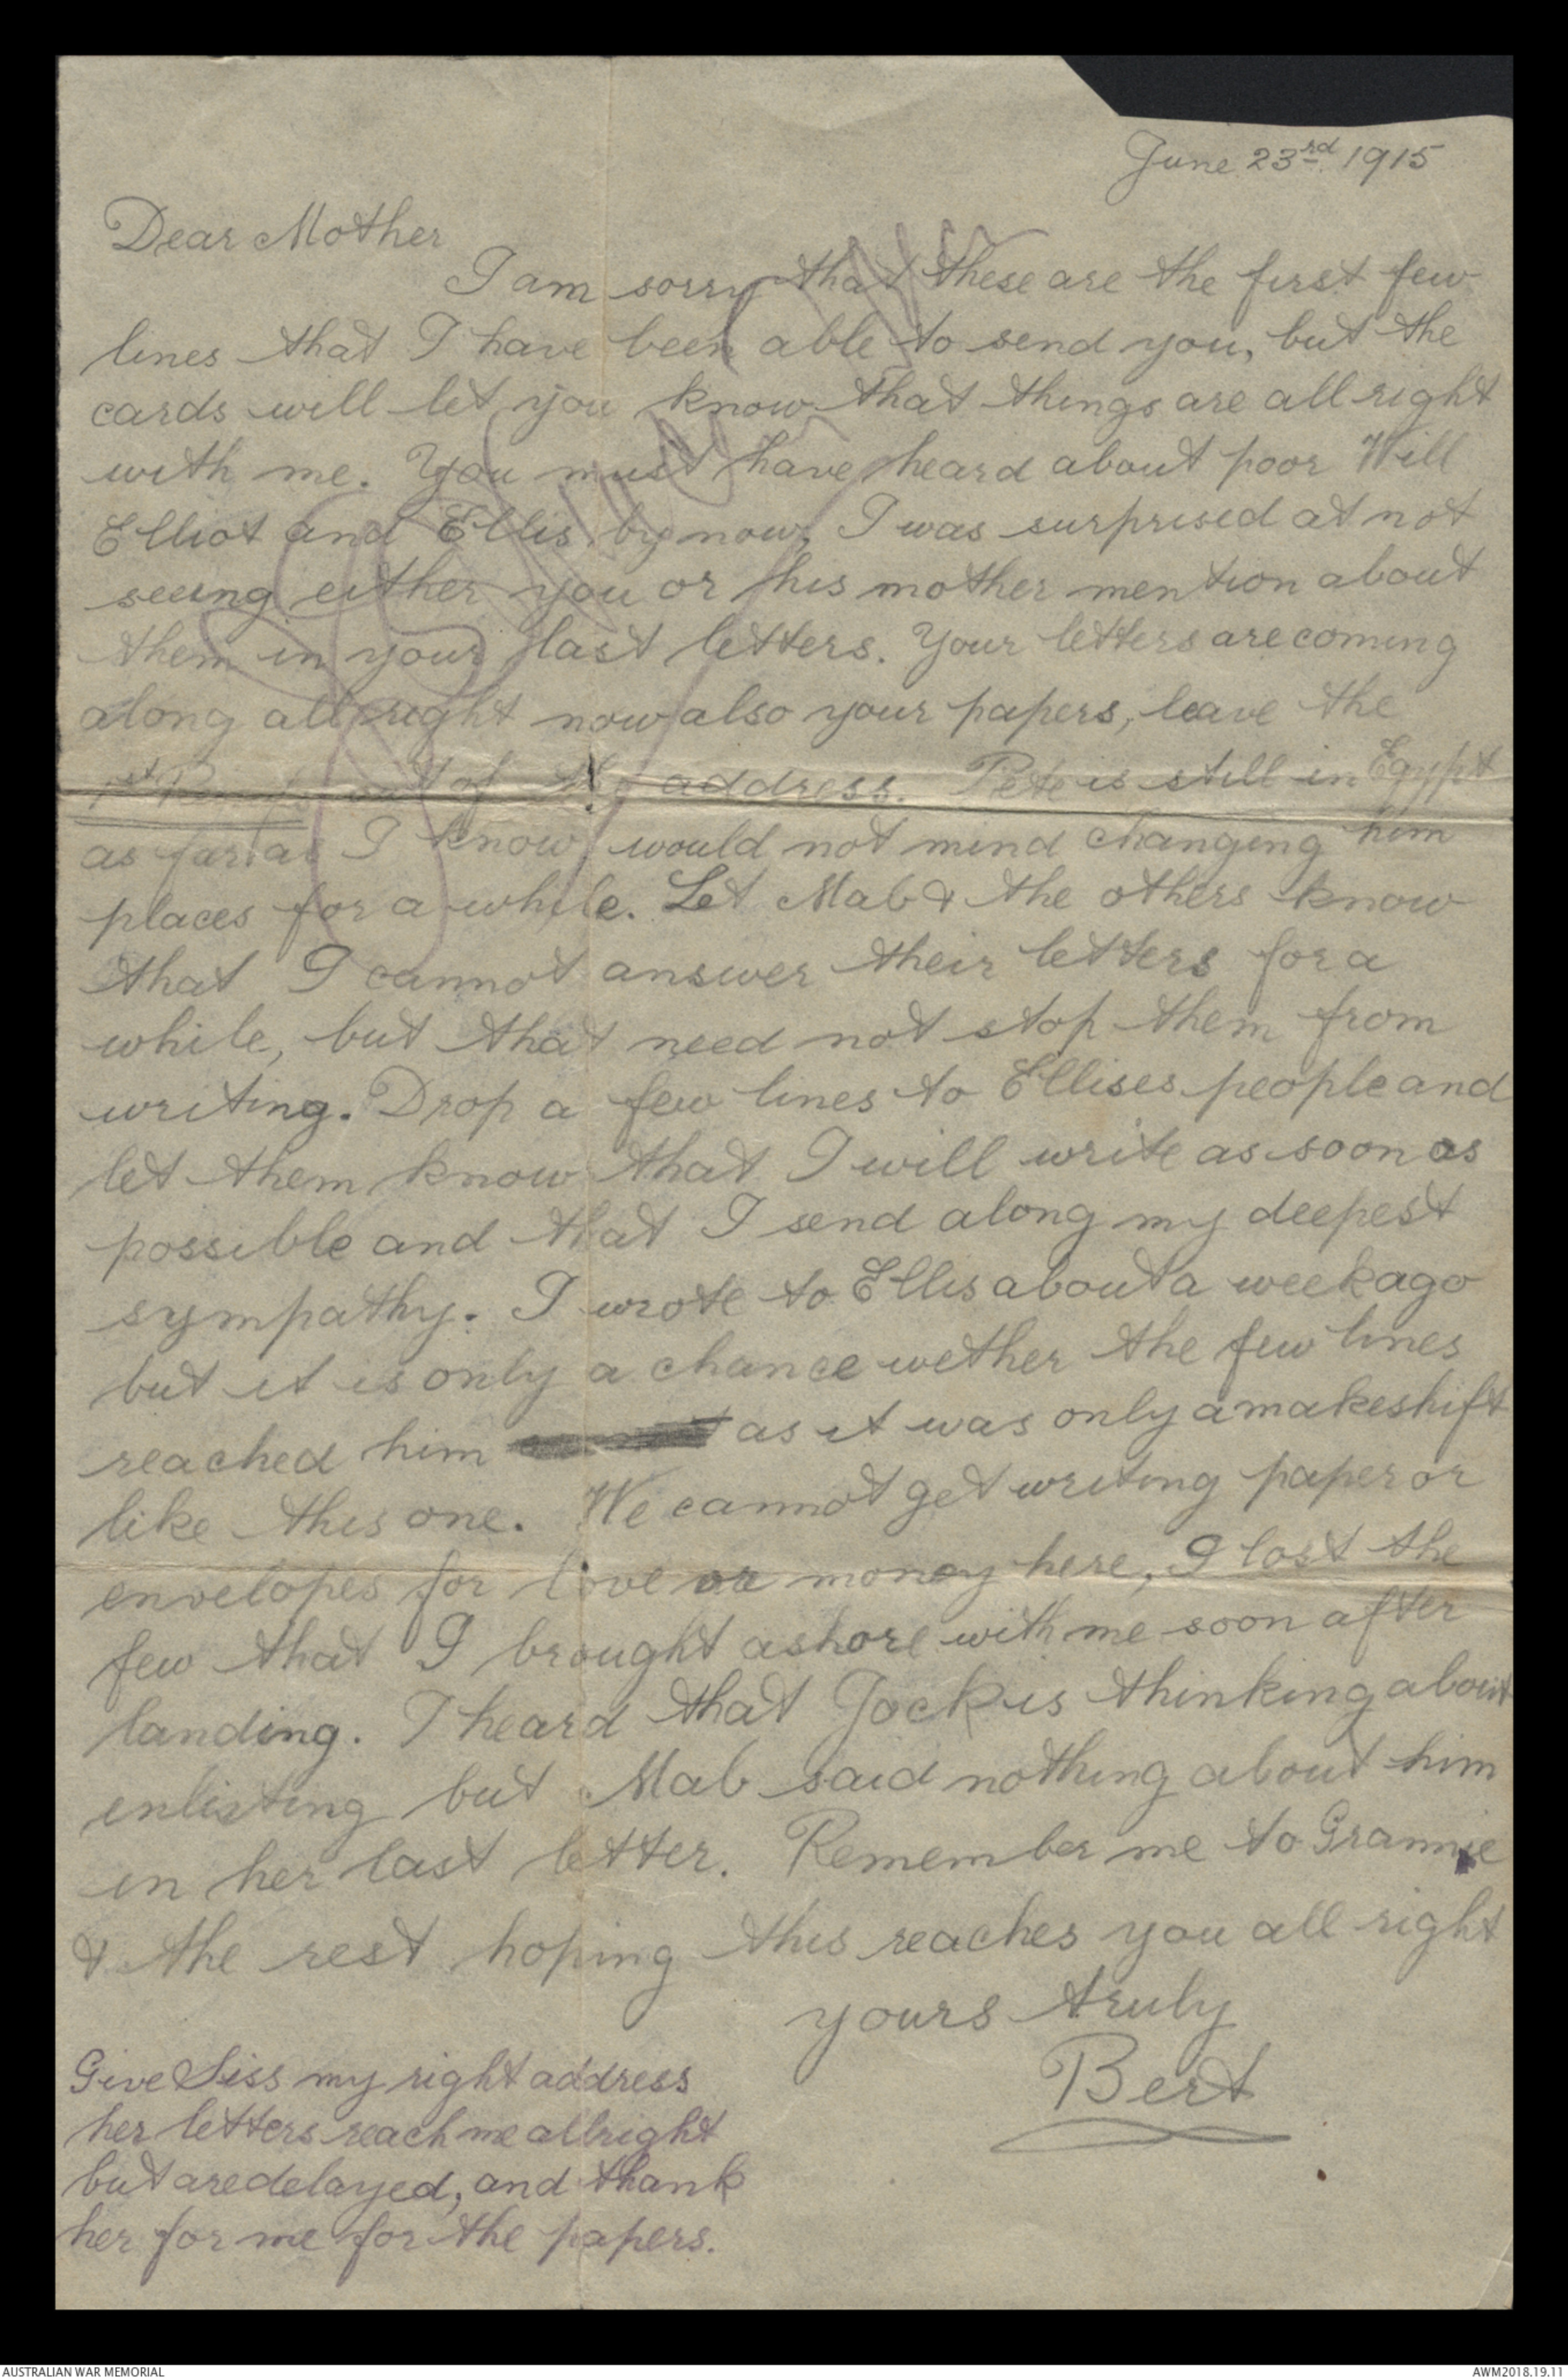 June 23rd 1915
Dear Mother
I am sorry that these are the first few
lines that I have been able to send you, but the
cards will let you know that things are all right
with me. You must have heard about poor Will
Elliot and Ellis by now, I was surprised at not
seeing either you or his mother mention about
them in your last letters. Your letters are coming
along all right now also your papers, leave the
1st out of my address. Pete is still in Egypt
as far as I know, would not mind changing him
places for a while. Let Mab & the others know
that I cannot answer their letters for a
while, but that need not stop them from
writing. Drop a few lines to Ellises people and
let them know that I will write as soon as
possible and that I send along my deepest
sympathy. I wrote to Ellis about a week ago
but it is only a chance wether the few lines
reached him as it was only a makeshift
like this one. We cannot get writing paper or
envelopes for love or money here, I lost the
few that I brought ashore with me soon after
landing. I heard that Jock is thinking about
enlisting but Mab said nothing about him
in her last letter. Remember me to Grannie
& the rest hoping this reaches you all right
yours truly
Bert
Give Siss my right address
her letters reach me allright
but are delayed, and thank
her for me for the papers.
AUSTRALIAN WAR MEMORIAL
AWM2018.19.11